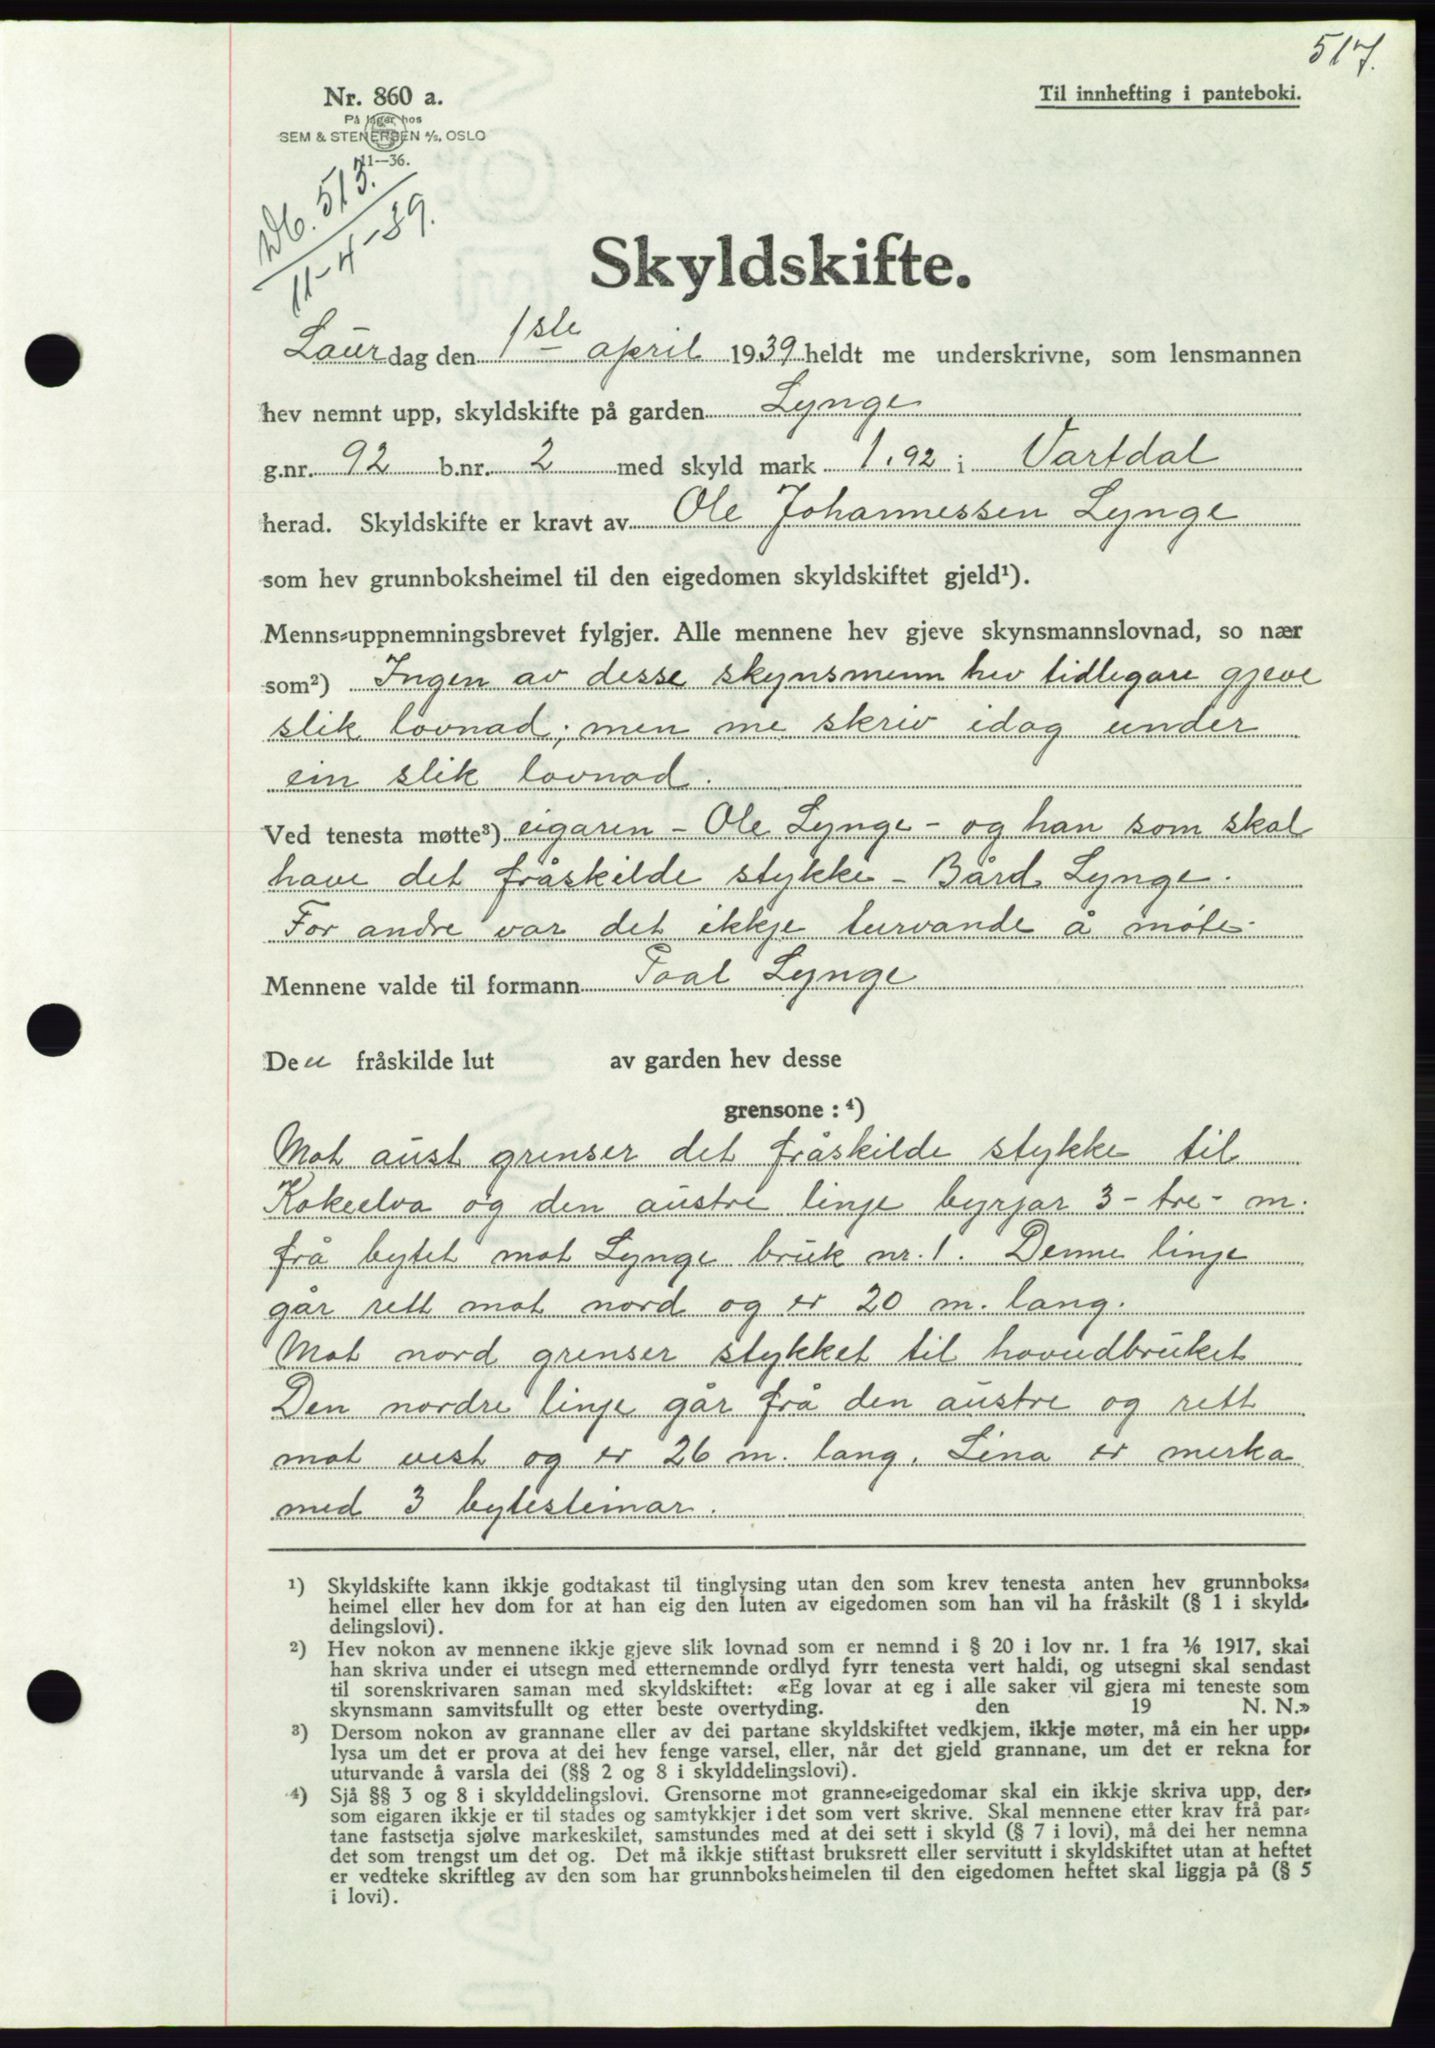 517.
Nr. 860 a.
Til innhefting i panteboki.
På lager hos
SEM & STENERSEN A/S, OSLO
11—36.
Db. 513.
11-4-39.
Skyldskifte.
Laurdag den 1ste april 1939 heldt me underskrivne, som lensmannen
hev nemnt upp, skyldskifte på garden Lynge
g.nr. 92 b.nr. 2 med skyld mark 1.92 i Vartdal
herad. Skyldskifte er kravt av Ole Johannessen Lynge
som hev grunnboksheimel til den eigedomen skyldskiftet gjeld¹).
Menns-uppnemningsbrevet fylgjer. Alle mennene hev gjeve skynsmannslovnad, so nær
som²) Ingen av desse skynsmenn hev tidlegare gjeve
slik lovnad; men me skriv idag under
ein slik lovnad.
Ved tenesta møtte³) eigaren - Ole Lynge - og han som skal
have det fråskilde stykke - Bård Lynge.
For andre var det ikkje turvande å møte.
Mennene valde til formann Paal Lynge
Den fråskilde lut av garden hev desse
grensone : ⁴)
Mot aust grenser det fråskilde stykke til
Kakeelva og den austre linje byrjar 3 - tre - m.
frå bytet mot Lynge bruk nr. 1. Denne linje
går rett mot nord og er 20 m. lang.
Mot nord grenser stykket til hovudbruket
Den nordre linje går frå den austre og rett
mot vest og er 26 m. lang. Lina er merka
med 3 bytesteinar.
¹) Skyldskifte kann ikkje godtakast til tinglysing utan den som krev tenesta anten hev grunnboks-
heimel eller hev dom for at han eig den luten av eigedomen som han vil ha fråskilt (§ 1 i skyld-
delingslovi).
²) Hev nokon av mennene ikkje gjeve slik lovnad som er nemnd i § 20 i lov nr. 1 fra ¹/₆ 1917, skal
han skriva under ei utsegn med etternemnde ordlyd fyrr tenesta vert haldi, og utsegni skal sendast
til sorenskrivaren saman med skyldskiftet: «Eg lovar at eg i alle saker vil gjera mi teneste som
skynsmann samvitsfullt og etter beste overtyding. den 19 N. N.»
³) Dersom nokon av grannane eller av dei partane skyldskiftet vedkjem, ikkje møter, må ein her upp-
lysa um det er prova at dei hev fenge varsel, eller, når det gjeld grannane, um det er rekna for
uturvande å varsla dei (§§ 2 og 8 i skylddelingslovi).
⁴) Sjå §§ 3 og 8 i skylddelingslovi. Grensorne mot granne-eigedomar skal ein ikkje skriva upp, der-
som eigaren ikkje er til stades og samtykkjer i det som vert skrive. Skal mennene etter krav frå par-
tane fastsetja sjølve markeskilet, samstundes med at dei sett i skyld (§ 7 i lovi), må dei her nemna
det som trengst um det og. Det må ikkje stiftast bruksrett eller servitutt i skyldskiftet utan at heftet
er vedteke skriftleg av den som har grunnboksheimelen til den eigedomen heftet skal liggja på (§ 5
i lovi).